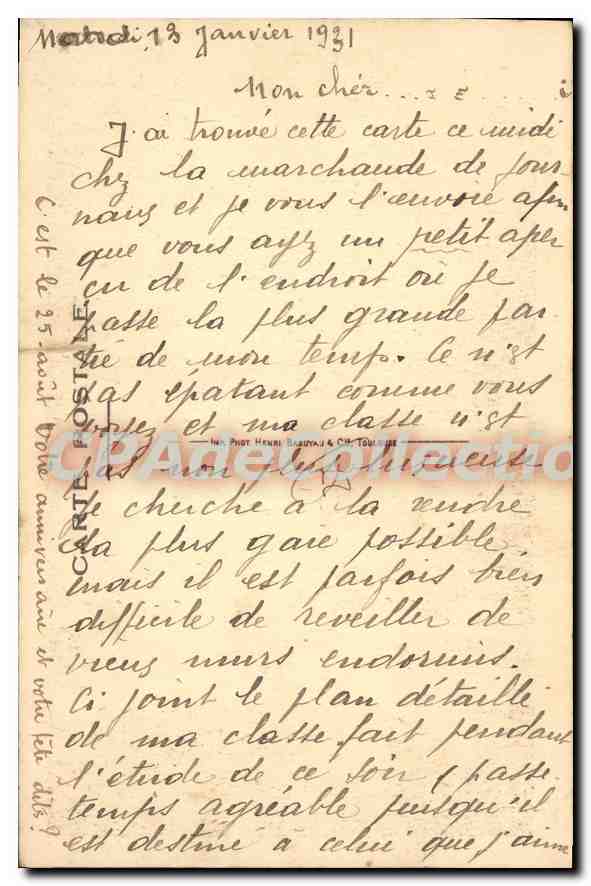 Mardi, 13 Janvier 1931
Mon chér
J'ai trouvé cette carte ce midi
chez la marchande de jour-
naux et je vous l'envoie afin
que vous ayez un petit aper
cu de l'endroit où je
passe la plus grande par-
tie de mon temps. Ce n'est
pas épatant comme vous
voyez et ma classe n'est
IMP. PHOT. HENRI BASUYAU & Cie, TOULOUSE
pas non plus luxueuse
Je cherche à la rendre
la plus gaie possible
mais il est parfois bien
difficile de reveiller de
vieux murs endormis.
Ci joint le plan détaillé
de ma classe fait pendant
l'étude de ce soir (passe
temps agréable puisqu'il
est destiné à celui que j'aime
C'est le 25 août votre anniversaire et votre fête dîtes ?
CARTE POSTALE
CPAdeCollection.com